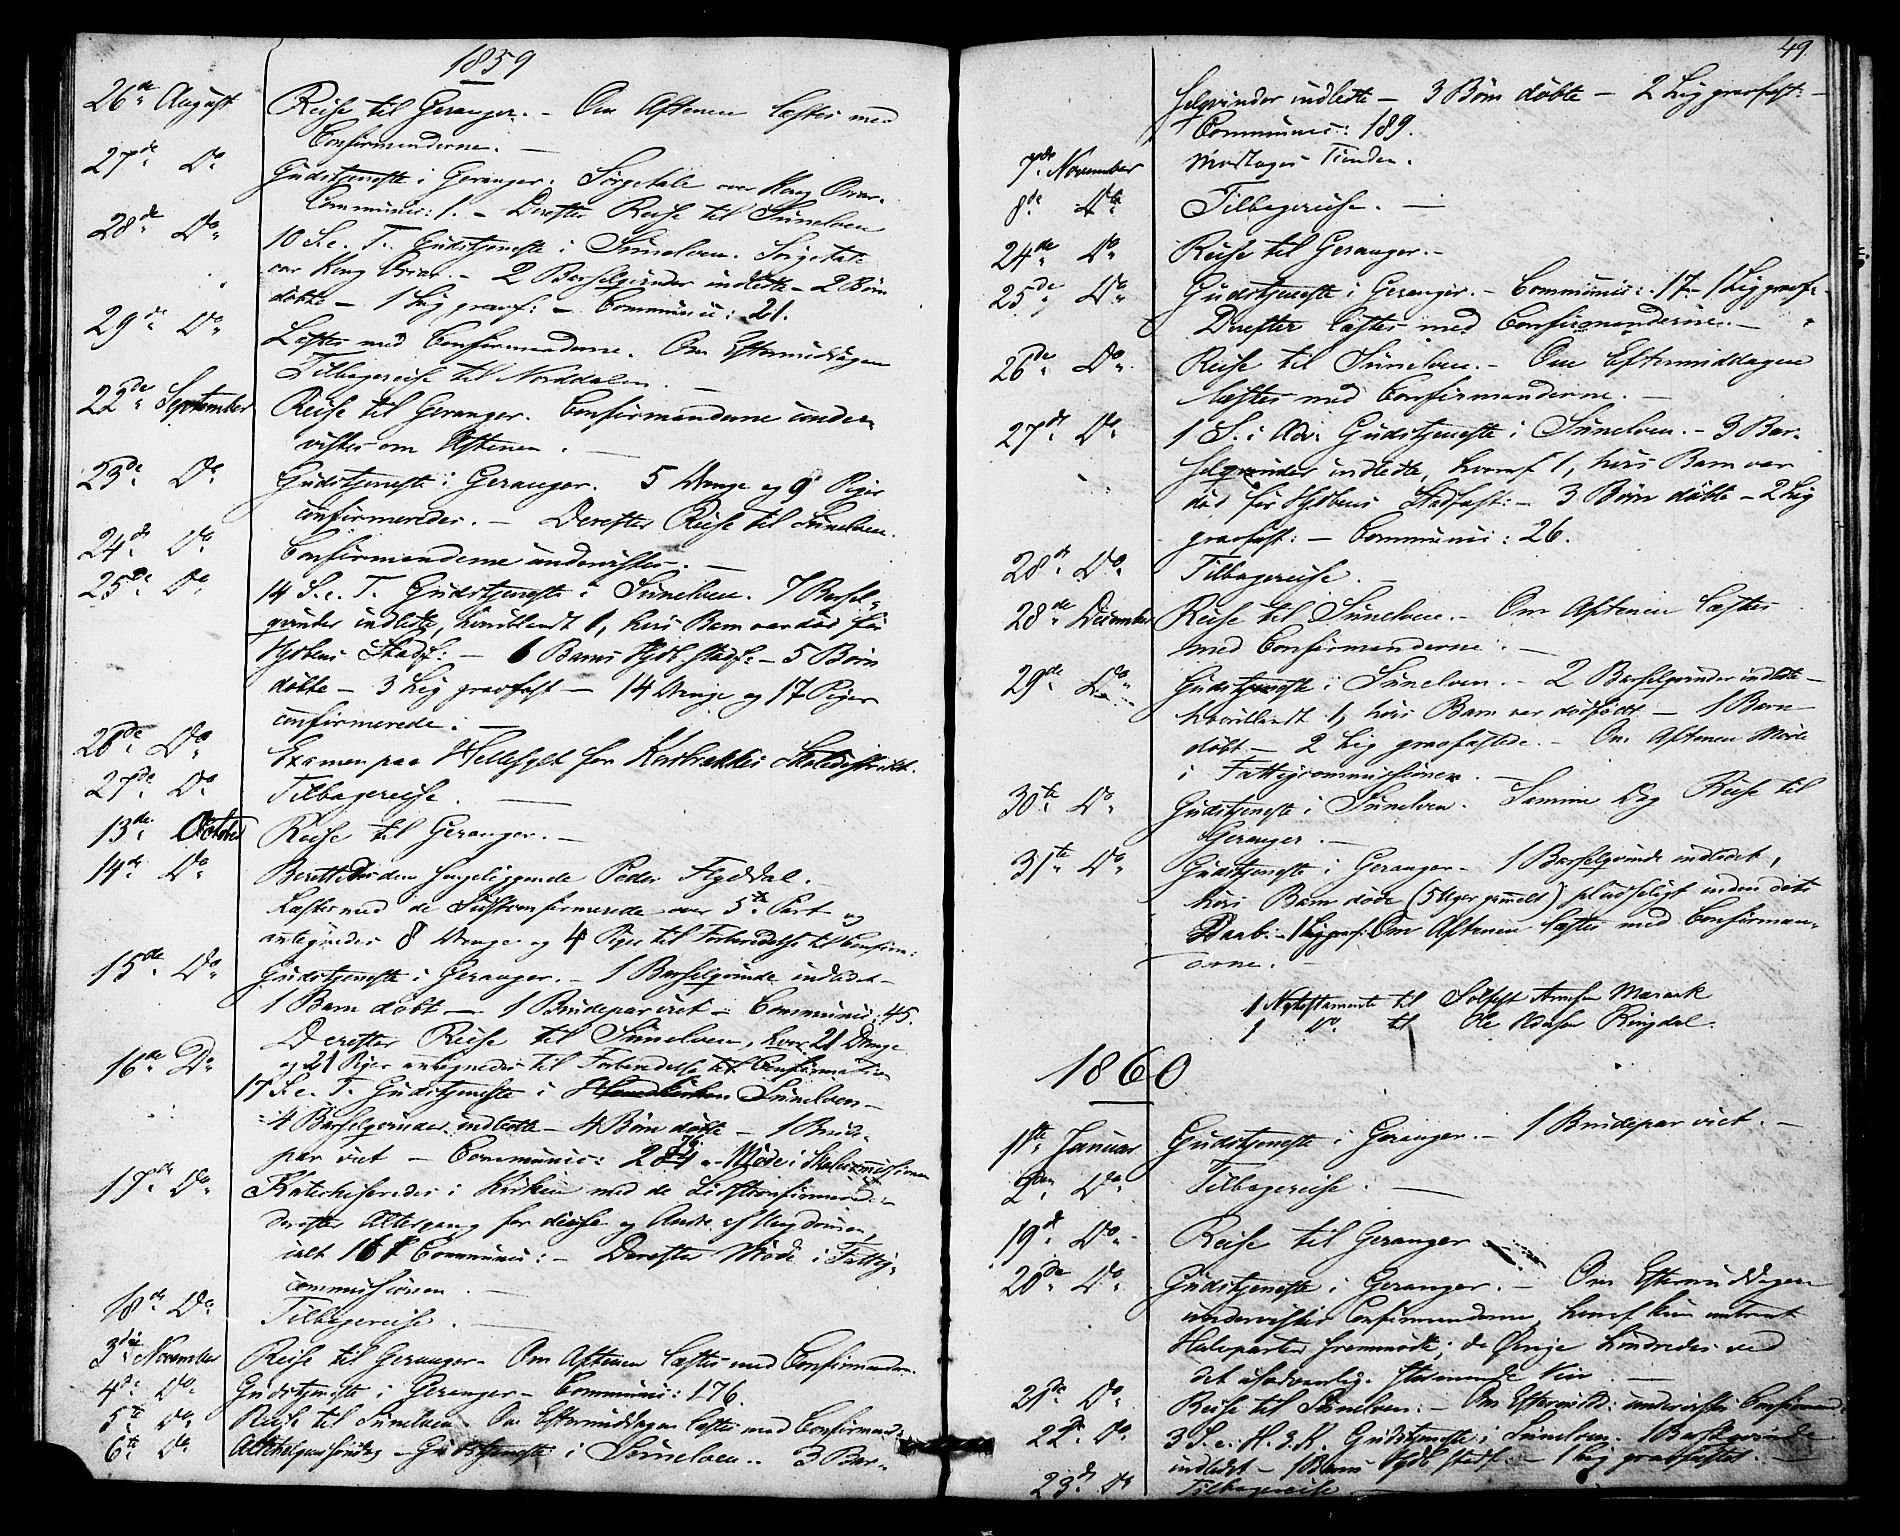 1859
26de August Reise til Geranger. – Om Aftenen læstes med
Confirmanderne. –
27de Do Gudstjeneste i Geranger. Sørgetale over Kong Oscar.
Communic: 1. – Derefter Reise til Sunelven
28de Do 10 S. e. T. Gudstjeneste i Sunelven. Sørgetale
over Kong Oscar. – 2 Barselqvinder indledte – 2 Børn
døbte – 1 Lig gravf: – Communic: 21.
29de Do Læstes med Confirmanderne. Om Eftermiddagen
Tilbagereise til Norddalen. –
22de September Reise til Geranger. Confirmanderne under-
vistes om Aftenen. –
23de Do Gudstjeneste i Geranger. 5 Drenge og 9 Piger
confirmeredes. – Derefter Reise til Sunelven.
24de Do Confirmanderne undervistes. –
25de Do 14 S. e. T. Gudstjeneste i Sunelven. 7 Barsel-
qvinder indledte, hvoriblandt 1, hvis Barn var død før
Hjdbens Stadf: – 6 Børns Hjdb. stadf: – 5 Børn
døbte – 3 Lig gravfast – 14 Drenge og 17 Piger
confirmerede. –
26de Do Examen paa Hellesylt for Korsbrekkes Skoledistrikt.
27de Do Tilbagereise. –
13de October Reise til Geranger. –
14de Do Berettedes den sengeliggende Peder Flydal. –
Læstes med de Sidstconfirmerede over 5te Part og
antegnedes 8 Drenge og 4 Piger til Forberedelse til Confirm:
15de Do Gudstjeneste i Geranger. – 1 Barselqvinde indledet –
1 Barn døbt – 1 Brudepar viet – Communic: 45.
Derefter Reise til Sunelven, hvor 21 Drenge
og 21 Piger antegnedes til Forberedelse til Confirmation
16de Do 17 S. e. T. Gudstjeneste i Sunelven –
4 Barselqvinder indledte – 4 Børn døbte – 1 Brude-
par viet – Communic: – Møde i Skolecommissionen
17de Do Katechiseredes i Kirken med de Sidstconfirmerede
derefter Altergang for disse og Andre af Ungdommen,
ialt 167 Communic: – Derefter Møde i Fattig-
commissionen. –
18de Do Tilbagereise. –
3die November Reise til Geranger – Om Aftenen læstes med Confirmanderne
4de Do Gudstjeneste i Geranger – Communic: 176.
5te Do Reise til Sunelven. Om Eftermiddagen læstes med Confirmand:
6te Do Allehelgenssøndag – Gudstjeneste i Sunelven. 3 Bar-
49
selqvinder indledte – 3 Børn døbte – 2 Lig gravfast: –
Communic: 189.
7de November Modtages Tienden.
8de Do Tilbagereise. –
24de Do Reise til Geranger. –
25de Do Gudstjeneste i Geranger. – Communic: 17 – 1 Lig gravf:
Derefter læstes med Confirmanderne. –
26de Do Reise til Sunelven. – Om Eftermiddagen
læstes med Confirmanderne. –
27de Do 1 S. i Adv: Gudstjeneste i Sunelven. – 3 Bar-
selqvinder indledte, hvoraf 1, hvis Barn var
død før Hjdbens Stadfæst: – 3 Børn døbte – 2 Lig
gravfast: – Communic: 26.
28de Do Tilbagereise. –
28de December Reise til Sunelven. – Om Aftenen læstes
med Confirmanderne. –
29de Do Gudstjeneste i Sunelven. – 2 Barselqvinder indledte –
hvoriblandt 1, hvis Barn var dødfødt – 1 Barn
døbt – 2 Lig gravfæstede. – Om Aftenen Møde
i Fattigcommissionen. –
30te Do Gudstjeneste i Sunelven. Samme Dag Reise til
Geranger. –
31te Do Gudstjeneste i Geranger – 1 Barselqvinde indledet,
hvis Barn døde (5 Uger gammelt) pludseligt inden dets
Daab. – 1 Lig gravf: Om Aftenen læstes med Confirman-
derne. –
1 Nytestamente til Sølfest Arnesen Maraak
1 Do til Ole Ringdal.
1860
1ste Januar Gudstjeneste i Geranger. – 1 Brudepar viet. –
2den Do Tilbagereise. –
19de Do Reise til Geranger –
20de Do Gudstjeneste i Geranger. – Om Eftermiddagen
undervistes Confirmanderne, hvoraf kun omtrent
Halvparten fremmødte; de Øvrige hindredes ved
det usædvanlig stormende Veir. –
21de Do Reise til Sunelven. – Om Eftermidd: undervistes Confirmand:
22de Do 3 S. e. H. 3. K. Gudstjeneste i Sunelven. 1 Barselqvinde
indledet – 1 Barns Hjdb. stadf: – 1 Lig gravfæstet. –
23de Do Tilbagereise. –